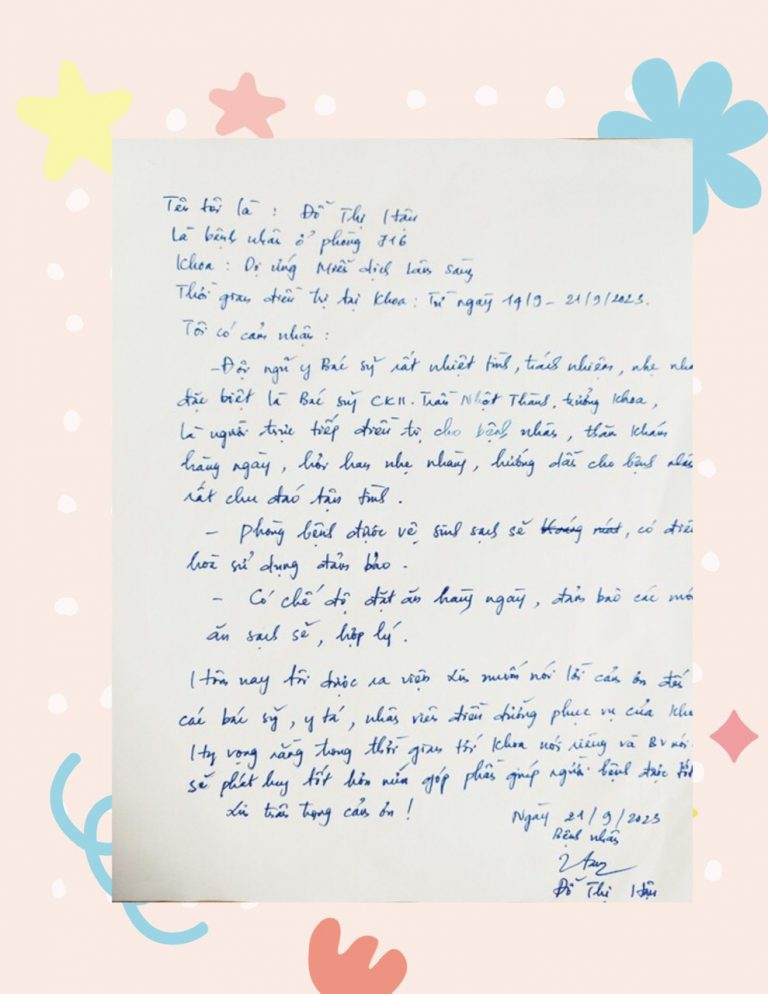 Tên tôi là : Đỗ Thị Hậu
Là bệnh nhân ở phòng 716
Khoa : Dị ứng Miễn dịch lâm sàng
Thời gian điều trị tại Khoa : Từ ngày 14/9 - 21/9/2023.
Tôi có cảm nhận :
- Đội ngũ y Bác sỹ rất nhiệt tình, trách nhiệm, nhẹ
đặc biệt là Bác sỹ CKII. Trần Nhật Thành, trưởng khoa,
là người trực tiếp điều trị cho bệnh nhân, thăm khám
hàng ngày, hỏi han nhẹ nhàng, hướng dẫn cho bệnh
rất chu đáo tận tình.
- Phòng bệnh được vệ sinh sạch sẽ , có
hoà sử dụng đảm bảo.
- Có chế độ đặt ăn hàng ngày, đảm bảo các
ăn sạch sẽ, hợp lý.
Hôm nay tôi được ra viện xin muốn nói lời cảm ơn
các bác sỹ, y tá, nhân viên điều dưỡng phục vụ của
Hy vọng rằng trong thời gian tới Khoa nói riêng và BV
sẽ phát huy tốt hơn nữa góp phần giúp người bệnh được
Xin trân trọng cảm ơn !
Ngày 21/9/2023
Bệnh nhân
Đỗ Thị Hậu